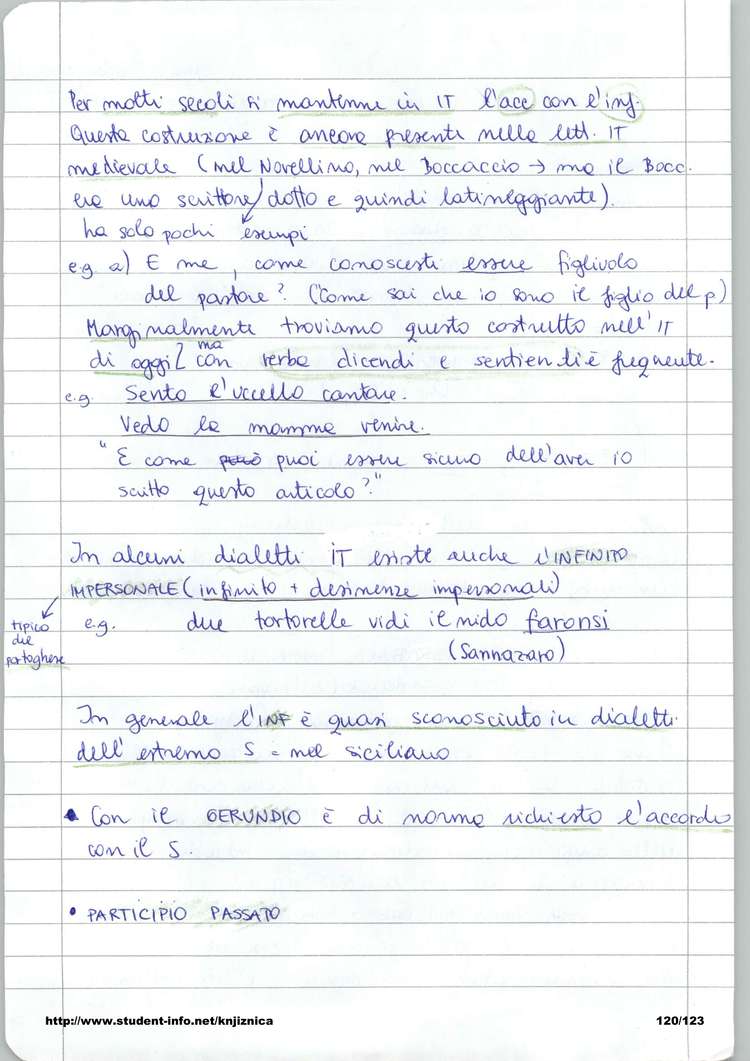 Per molti secoli si mantenne in IT l'acc con l'inf.
Questa costruzione è ancora presente nella lett. IT
medievale (nel Novellino, nel Boccaccio → ma il Bocc.
era uno scrittore dotto e quindi latineggiante).
ha solo pochi esempi
e.g. a) E me, come conoscesti essere figlivolo
del pastore? (Come sai che io sono il figlio del p)
Marginalmente troviamo questo costrutto nell'IT
di oggi ma con verba dicendi e sentiendi è frequente.
e.g. Sento l'uccello cantare.
Vedo la mamma venire.
"E come può puoi essere sicuro dell'aver io
scritto questo articolo?"
In alcuni dialetti IT esiste anche l'INFINITO
IMPERSONALE (infinito + desinenze impersonali)
tipico del portoghese
e.g. due tortorelle vidi il nido faronsi
(Sannazaro)
In generale l'INF è quasi sconosciuto in dialetti
dell'estremo S = nel siciliano
• Con il GERUNDIO è di norma richiesto l'accordo
con il S.
• PARTICIPIO PASSATO
http://www.student-info.net/knjiznica 120/123